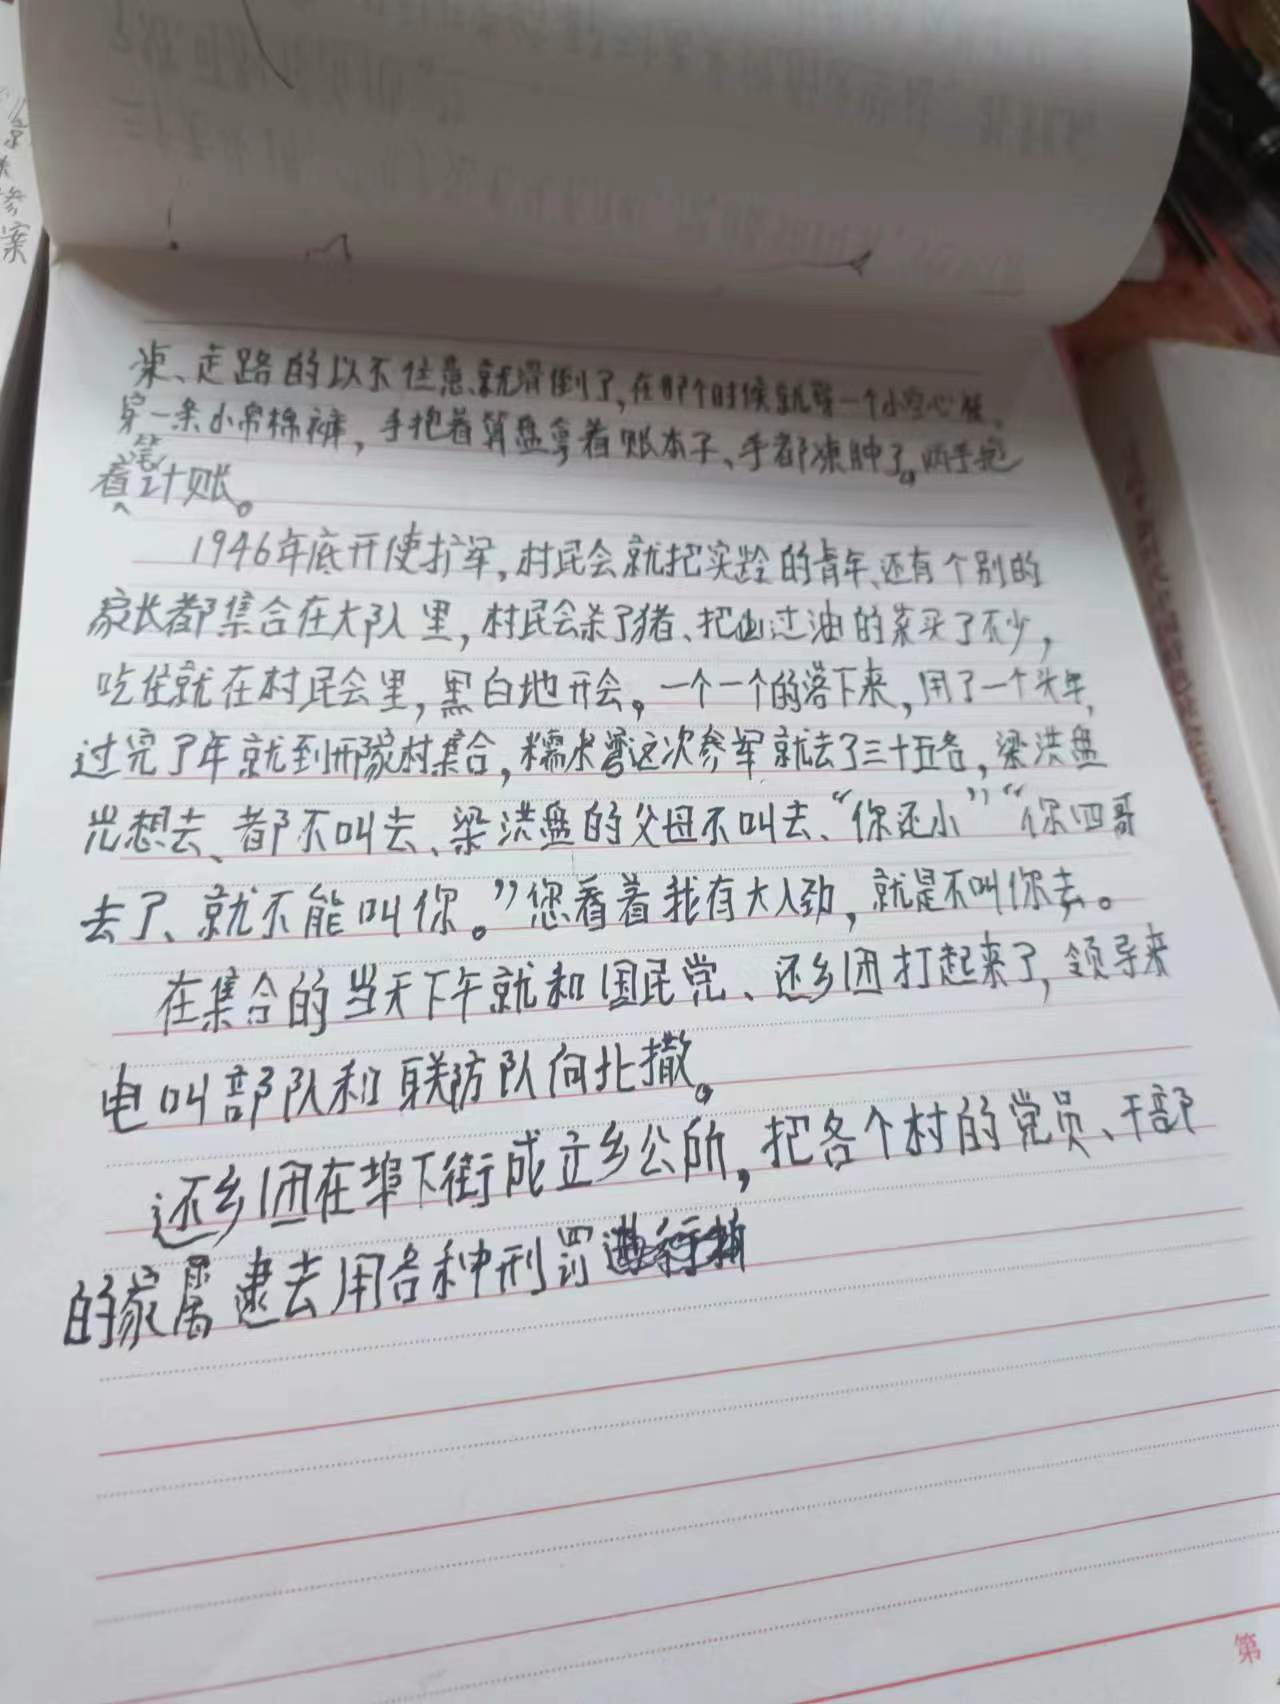 走路的以不住意就滑倒了，在那个时候就穿一个小空心袄，
穿一条小常棉裤，手抱着算盘拿着账本子、手都冻肿了。两手抱
着笔计账。
1946年底开使扩军，村民会就把实龄的青年、还有个别的
家长都集合在大队里，村民会杀了猪、把出过油的菜买了不少，
吃住就在村民会里，黑白地开会。一个一个的落下来，用了一个半年，
过完了年就到邢家村集合，糯米湾这次参军就去了三十五名，梁洪盘
岂想去、都不叫去、梁洪盘的父母不叫去、“你还小”“你四哥
去了、就不能叫你。”您看着我有大人劲，就是不叫你去。
在集合的当天下午就和国民党、还乡团打起来了，领导来
电叫部队和联防队向北撤。
还乡团在埠下街成立乡公所，把各个村的党员、干部
的家属逮去用各种刑罚
第